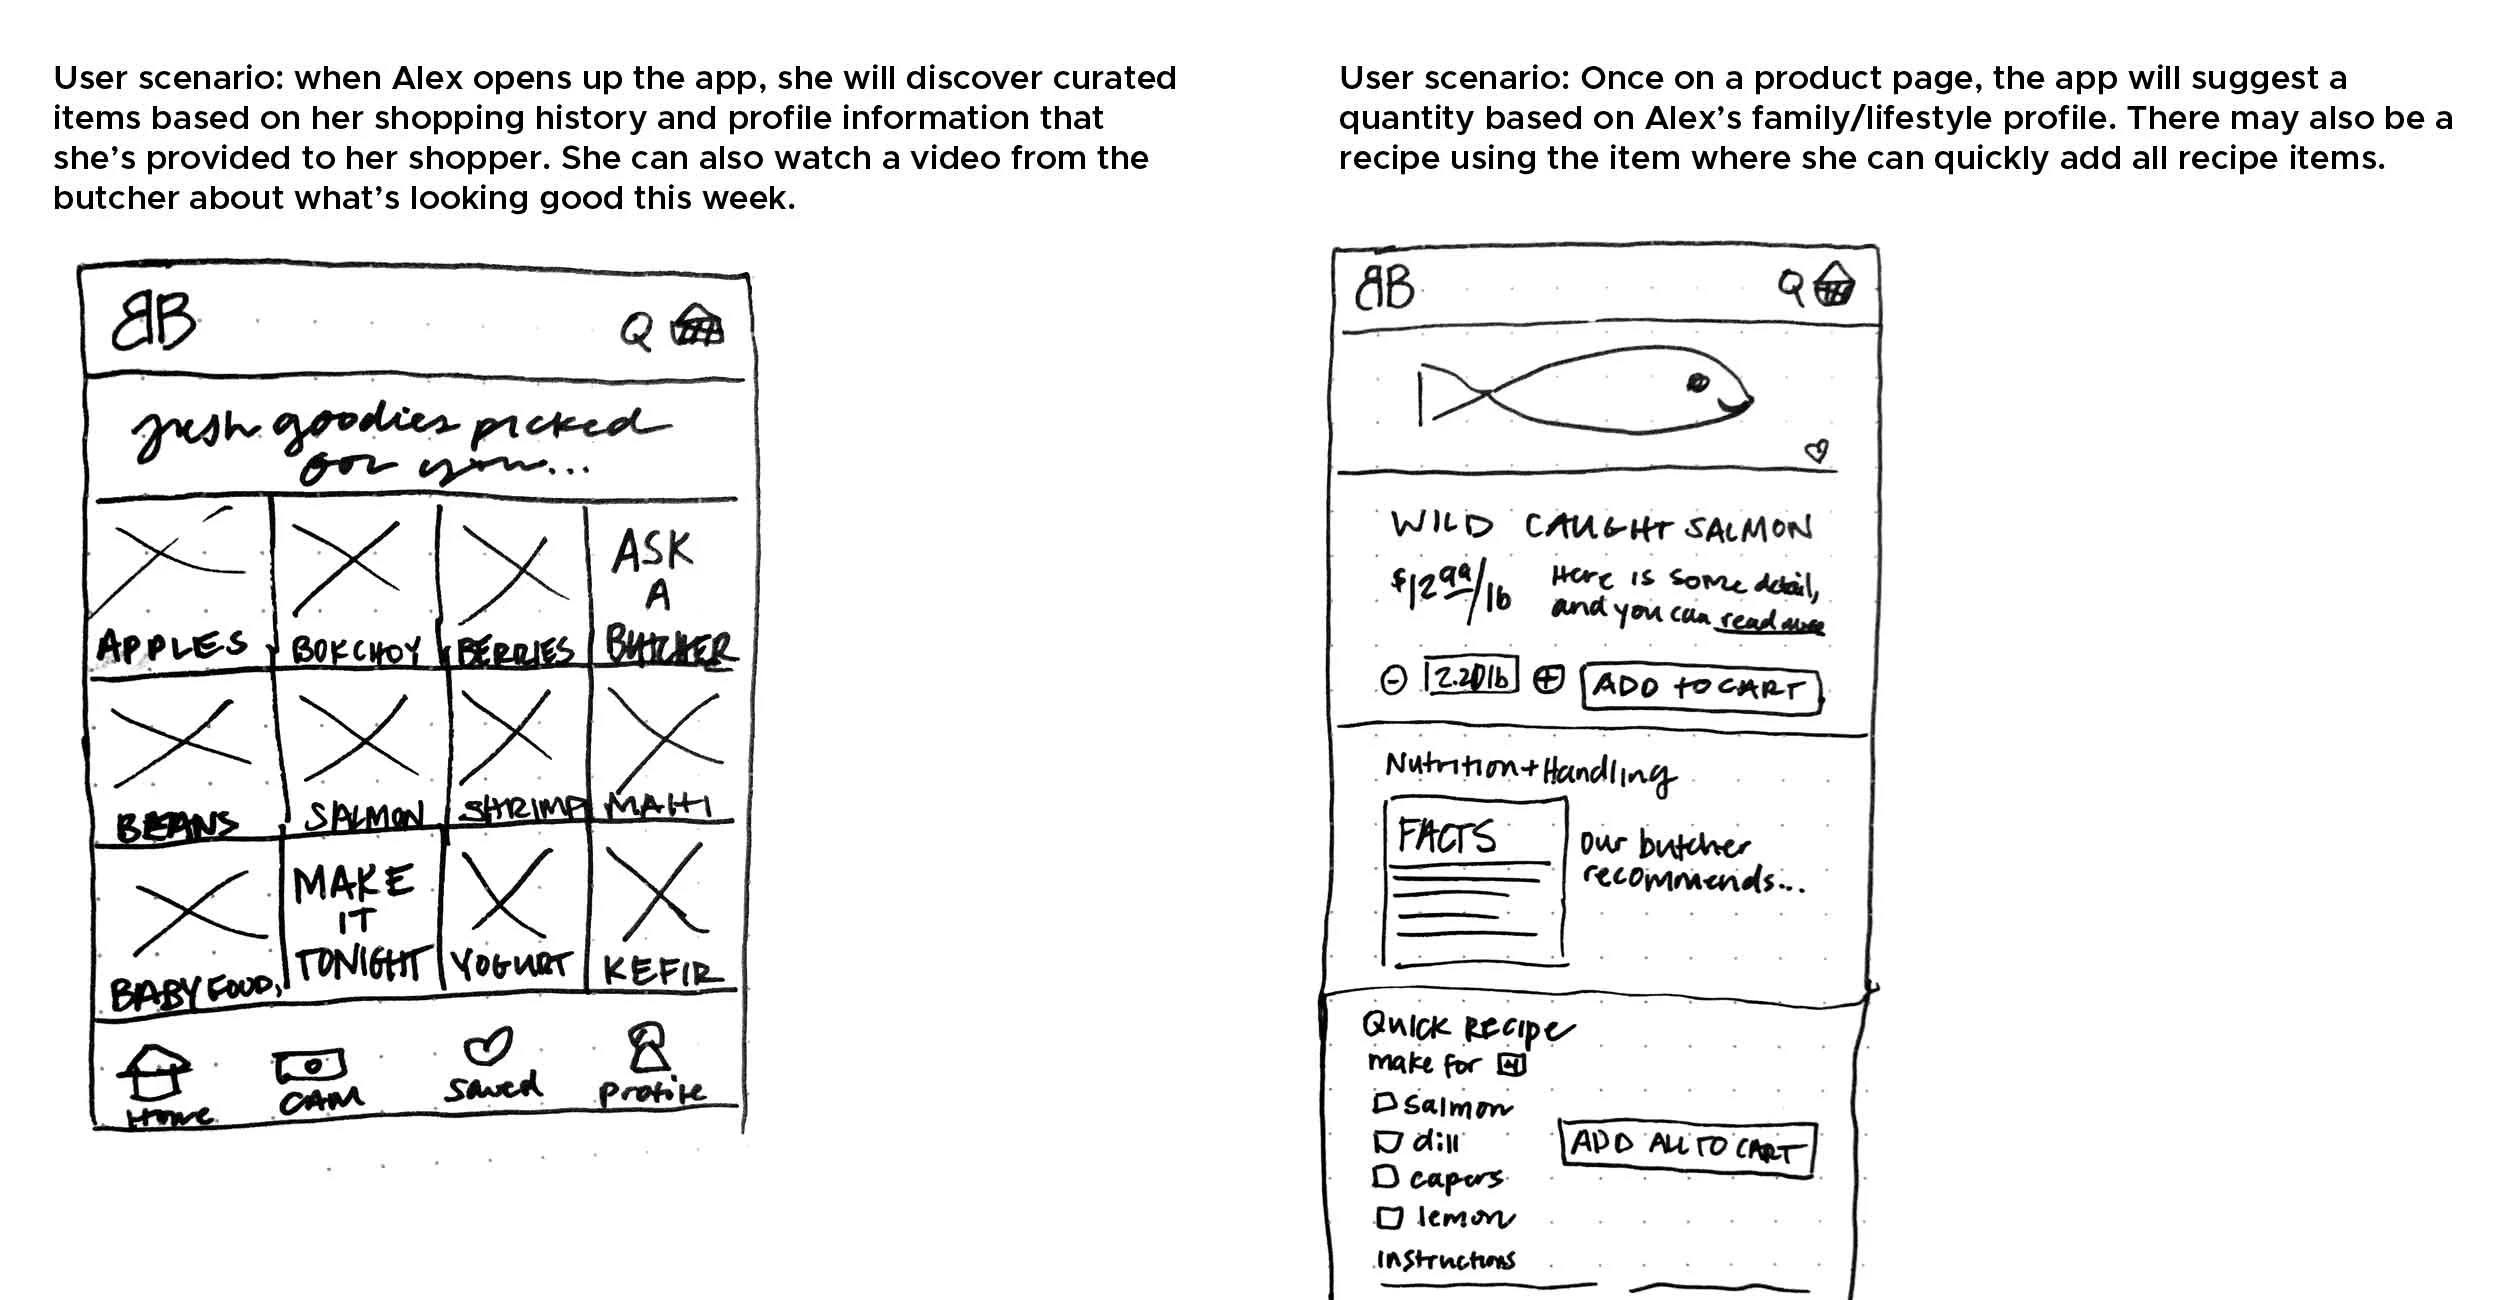 User scenario: when Alex opens up the app, she will discover curated
items based on her shopping history and profile information that
she's provided to her shopper. She can also watch a video from the
butcher about what's looking good this week.
BB
fresh goodies picked
for you...
APPLES
BOKCHOY
BERRIES
ASK
A
BUTCHER
BEANS
SALMON
SHRIMP
MAHI
BABY FOOD
MAKE
IT
TONIGHT
YOGURT
KEFIR
Home
CAM
saved
profile
User scenario: Once on a product page, the app will suggest a
quantity based on Alex's family/lifestyle profile. There may also be a
recipe using the item where she can quickly add all recipe items.
BB
WILD CAUGHT SALMON
$12.99/lb
Here is some detail,
and you can read more
- 2.20lb + ADD TO CART
Nutrition + Handling
FACTS
our butcher
recommends...
Quick Recipe
make for
salmon
dill
capers
lemon
ADD ALL TO CART
instructions